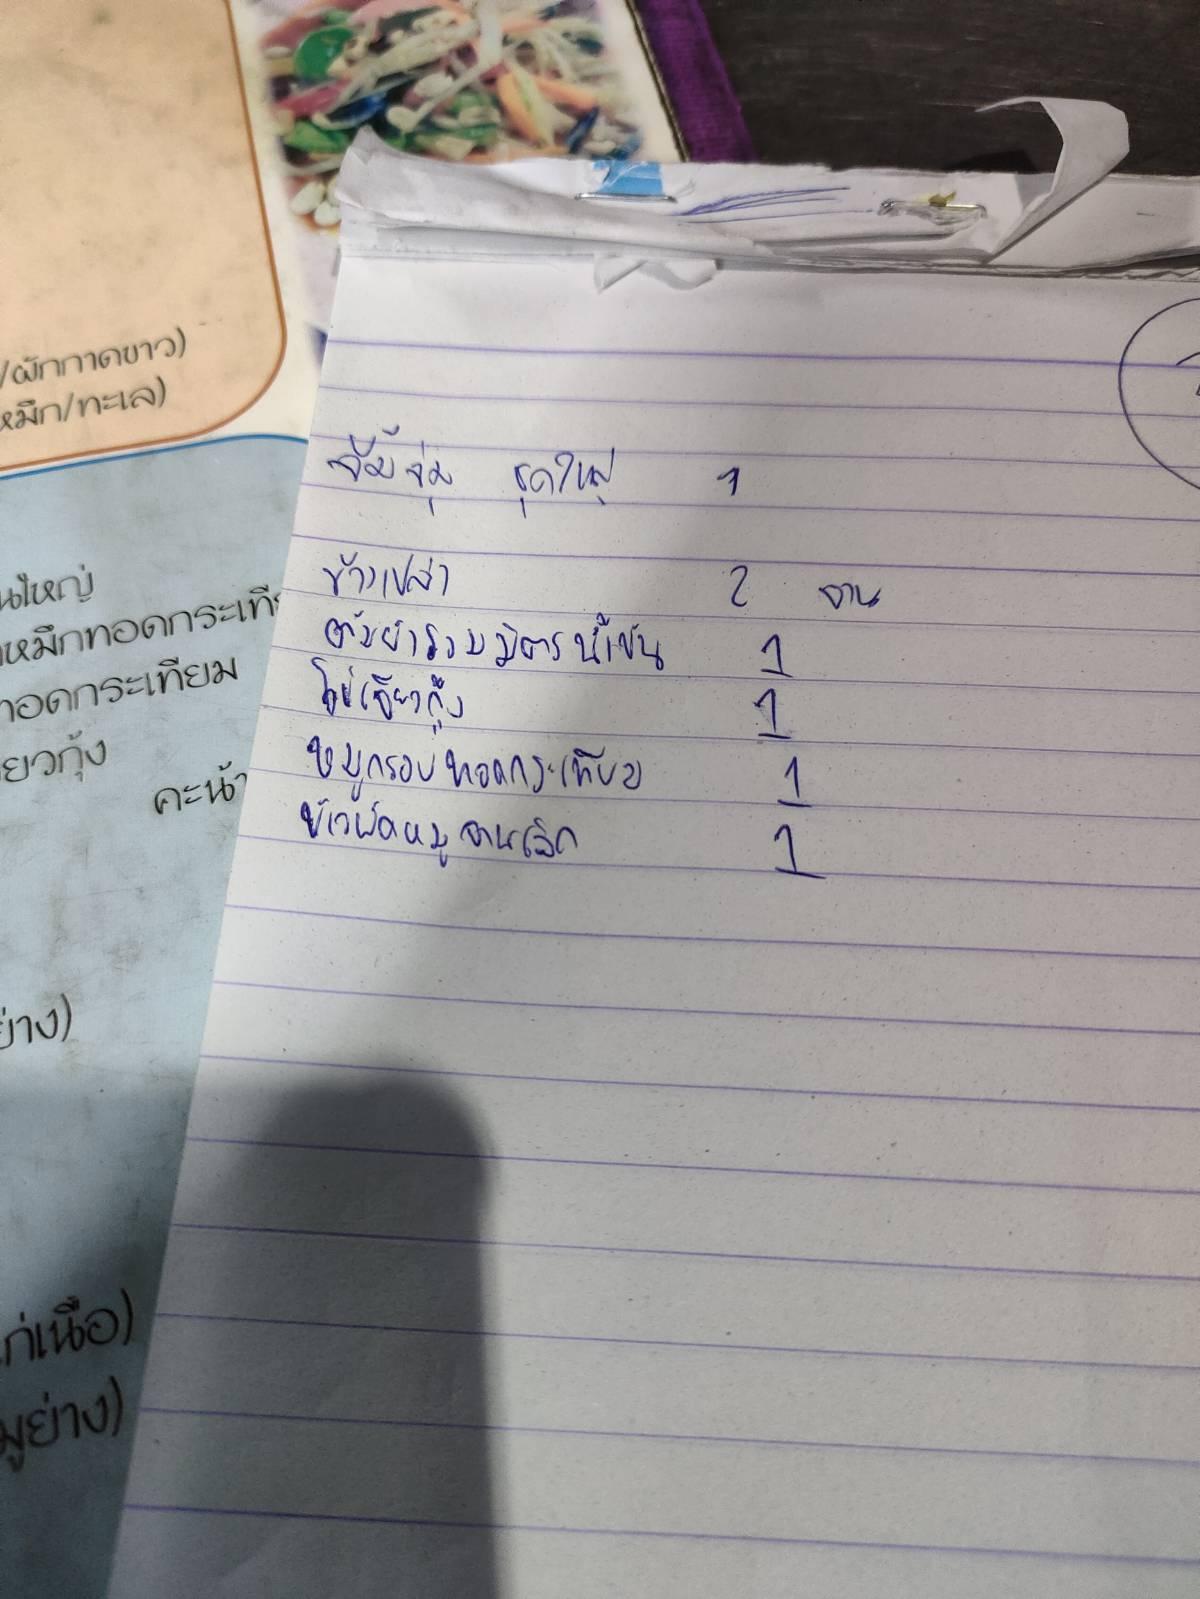 /ผักกาดขาว)
หมึก/ทะเล)
จิ้มจุ่ม ชุดใหญ่ 1
ข้าวเปล่า 2 จาน
ต้มยำรวมมิตรน้ำข้น 1
ไข่เจียวกุ้ง 1
หมูกรอบทอดกระเทียม 1
ข้าวผัดหมูจานเล็ก 1
นใหญ่
หมึกทอดกระเที
ทอดกระเทียม
ยวกุ้ง
คะน้า
ย่าง)
ก่เนื้อ)
มูย่าง)